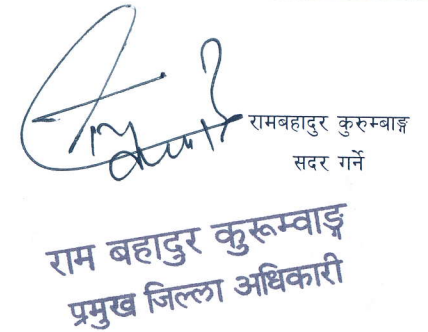 रामबहादुर कुरुम्बाङ्ग
सदर गर्ने
राम बहादुर कुरूम्वाङ्ग
प्रमुख जिल्ला अधिकारी